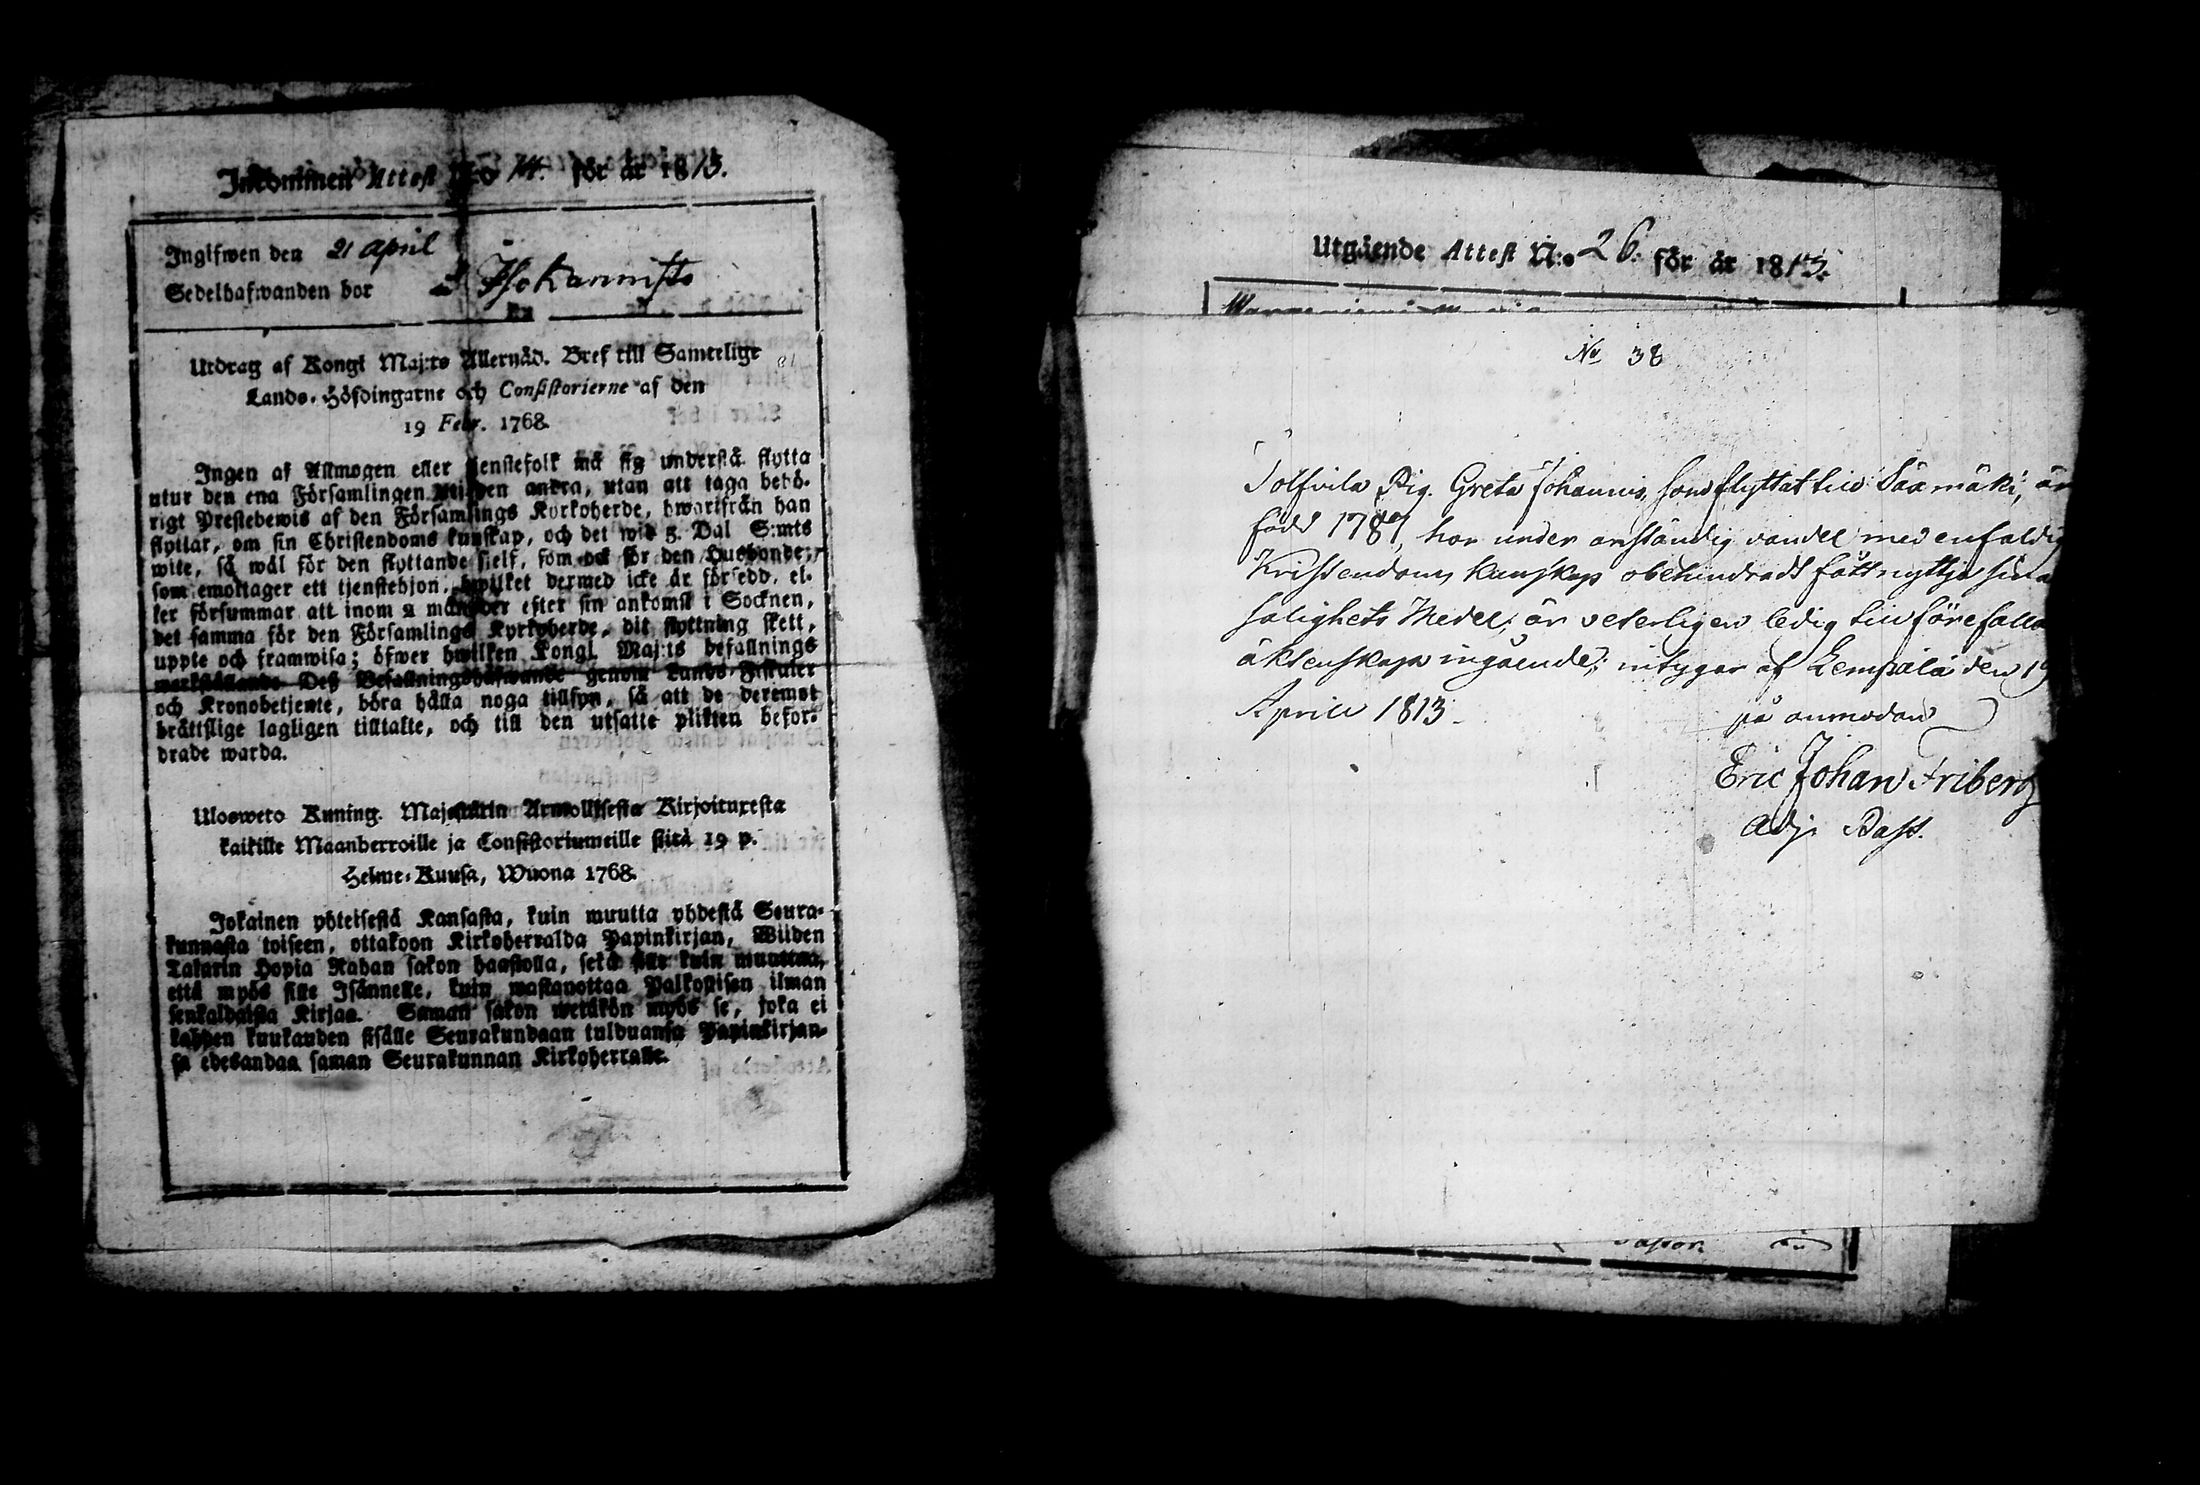 Inkommen Attest N:o 14. för år 1813.
Ingifwen den 21 April
Sedelhafwanden bor
Utdrag af Kongl Maj:ts Allernåd. Bref till Samtelige
Lands-Höfdingarne och Consistorierne af den
19 Febr. 1768.
Ingen af Allmogen eller tjenstefolk må sig understå flytta
utur den ena Församlingen uti den andra, utan att taga behö-
rigt Prestebewis af den Församlings Kyrkoherde, hwarifrån han
flyttar, om sin Christendoms kunskap, och det wid 5. Dal S:mts
wite, så wäl för den flyttande sjelf, som ock för den Husbonde,
som emottager ett tjenstehjon, hwilket dermed icke är försedd, el-
ler försummar att inom 2 månader efter sin ankomst i Socknen,
det samma för den Församlings Kyrkoherde, dit flyttning skett,
uppte och framwisa; öfwer hwilken Kongl. Maj:ts befallnings
werkställande Deß Befallningshafwande genom Lands-Fiskaler
och Kronobetjente, böra hålla noga tillsyn, så att de deremot
bråttslige lagligen tilltalte, och till den utsatte plikten befor-
drade warda.
Ulosweto Kuning. Majestätin Armollisesta Kirjoituxesta
kaikille Maanherroille ja Consistoriumeille siitä 19 p.
Helme-Kuusa, Wuona 1768.
Jokainen yhteisestä Kansasta, kuin muutta yhdestä Seura-
kunnasta toiseen, ottakoon Kirkoherralda Papinkirjan, Wiiden
Talarin Hopia Rahan sakon haastolla, sekä sille kuin muuttaa,
että myös sille Isännelle, kuin wastanottaa Palkollisen ilman
senkaldaista Kirjaa. Saman sakon wetäkön myös se, joka ei
kahden kuukauden sisälle Seurakundaan tulduansa Papinkirjan-
sa edesandaa saman Seurakunnan Kirkoherralle.
Utgående Attest N:o 26. för år 1813.
No 38
Pig. Greta Johannis, som flyttat till Sääxmäki, är
född 1787, har under anständig vandel med enfaldig
Kristendoms kunskap obehindradt fått nyttja sina
salighets Medel; är veterligen ledig till förefalla
äktenskaps ingående; intygar af Lempälä den 19
April 1813.
på anmodan
Eric Johan Friberg
Adj. Past.